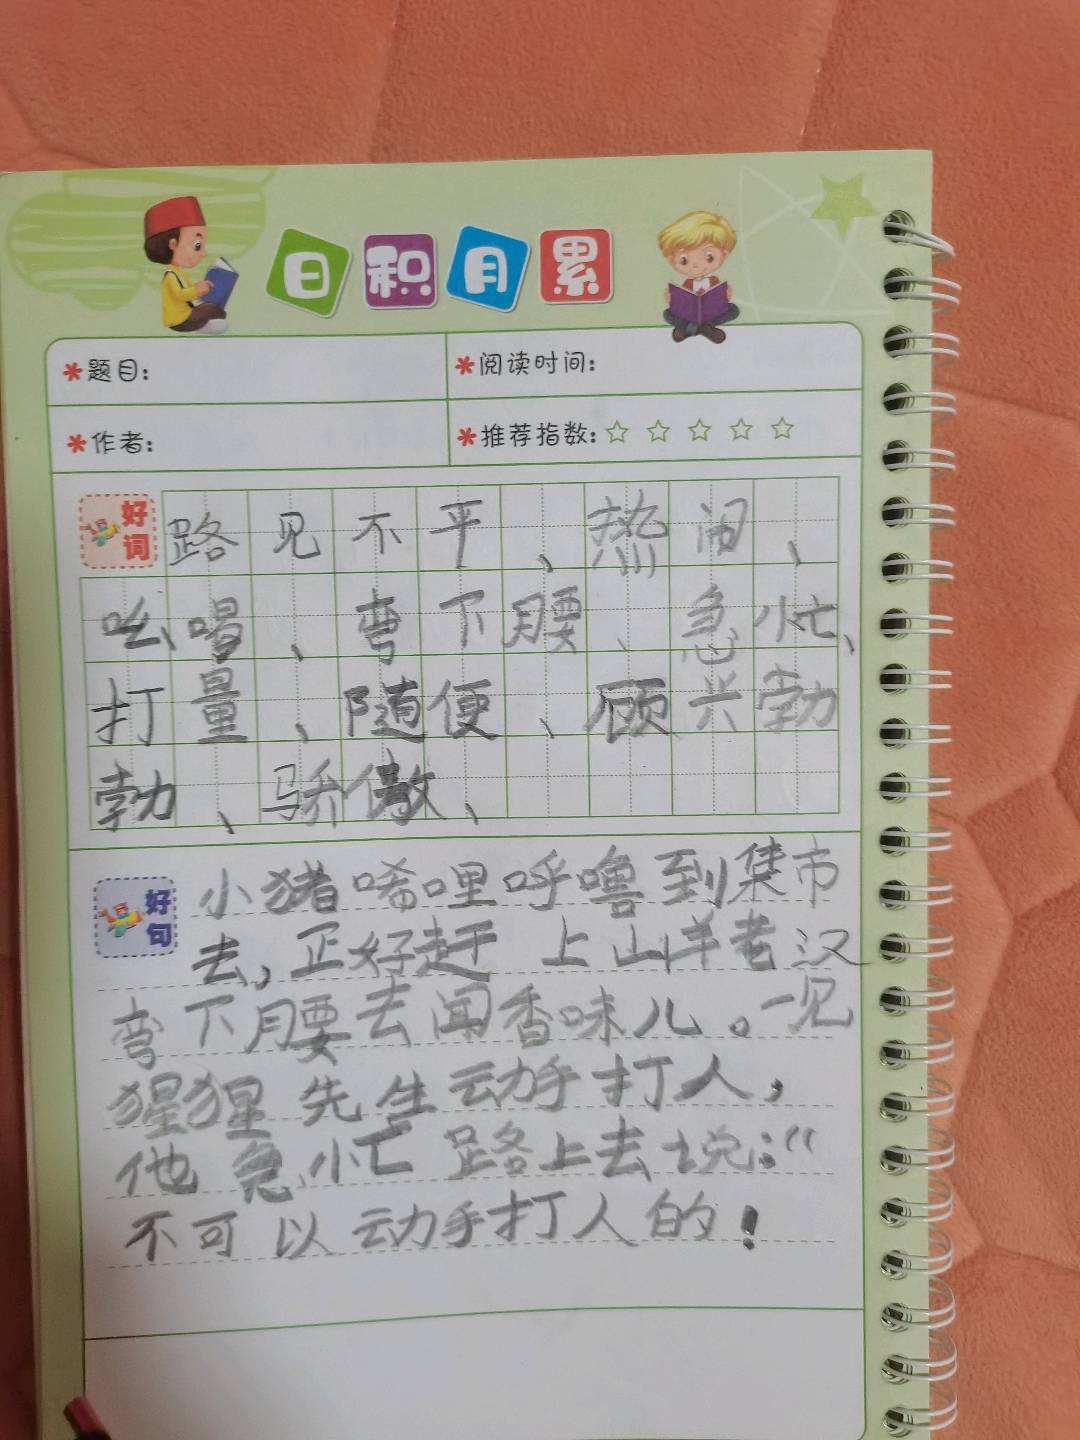 日积月累
题目： 阅读时间：
作者： 推荐指数：☆☆☆☆☆
好词 路见不平、热闹、
吆喝、弯下腰、急忙、
打量、随便、顾兴勃
勃、骄傲、
好句 小猪唏哩呼噜到集市
去，正好赶上山洋老汉
弯下腰去闻香味儿。一见
猩猩先生动手打人，
他急忙路上去说：“
不可以动手打人的！